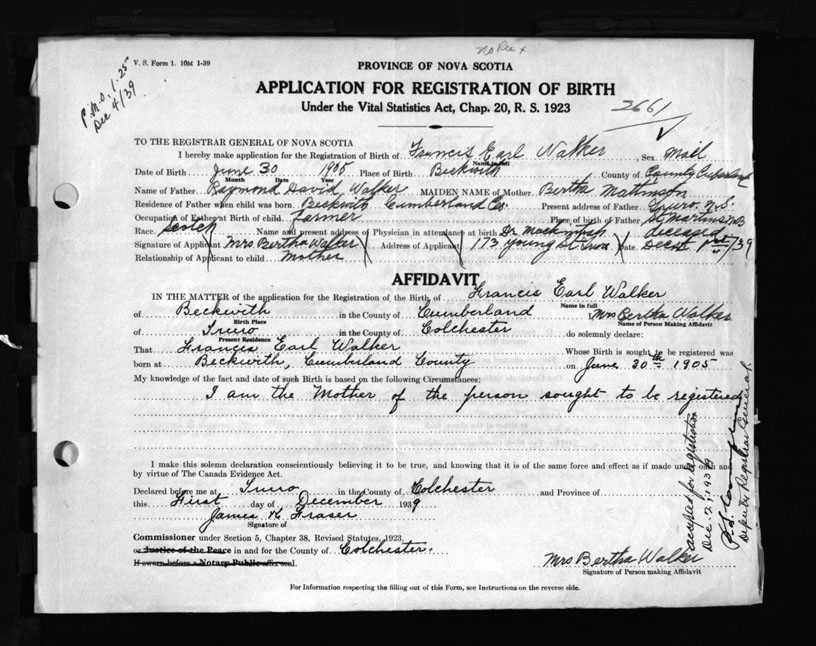 V. S. Form 1. 10M 1-39
P.M.O. 1.25
Dec 4/39
PROVINCE OF NOVA SCOTIA
APPLICATION FOR REGISTRATION OF BIRTH
Under the Vital Statistics Act, Chap. 20, R. S. 1923
2661
TO THE REGISTRAR GENERAL OF NOVA SCOTIA
I hereby make application for the Registration of Birth of Francis Earl Walker Sex Mail
Name in full
Date of Birth June 30 1905 Place of Birth Beckwith County of County Cumberland
Month Date Year
Name of Father Raymond David Walker MAIDEN NAME of Mother Bertha Mattinson
Residence of Father when child was born. Beckwith Cumberland Co. Present address of Father Truro, N.S.
Occupation of Father at Birth of child. farmer Place of birth of Father St Martins N B
Race. Scotch Name and present address of Physician in attendance at birth Dr Mackintosh deceased
Signature of Applicant Mrs Bertha Walker Address of Applicant 173 young St Truro Date. Dec 1st/39
Relationship of Applicant to child mother
AFFIDAVIT
IN THE MATTER of the application for the Registration of the Birth of Francis Earl Walker
Name in full
of Beckwith in the County of Cumberland Mrs Bertha Walker
Birth Place Name of Person Making Affidavit
of Truro in the County of Colchester do solemnly declare:
Present Residence
That Francis Earl Walker Whose Birth is sought to be registered was
born at Beckwith, Cumberland County on June 30th 1905
My knowledge of the fact and date of such Birth is based on the following Circumstances:
I am the Mother of the person sought to be registered
I make this solemn declaration conscientiously believing it to be true, and knowing that it is of the same force and effect as if made under oath and
by virtue of The Canada Evidence Act.
Declared before me at Truro in the County of Colchester and Province of
this First day of December 1939
James N Fraser
Signature of
Commissioner under Section 5, Chapter 38, Revised Statutes, 1923,
or Justice of the Peace in and for the County of Colchester.
If sworn before a Notary Public affix seal.
Mrs Bertha Walker
Signature of Person making Affidavit
accepted for registration
Dec. 2, 1939
Deputy Registrar General.
For Information respecting the filling out of this Form, see Instructions on the reverse side.